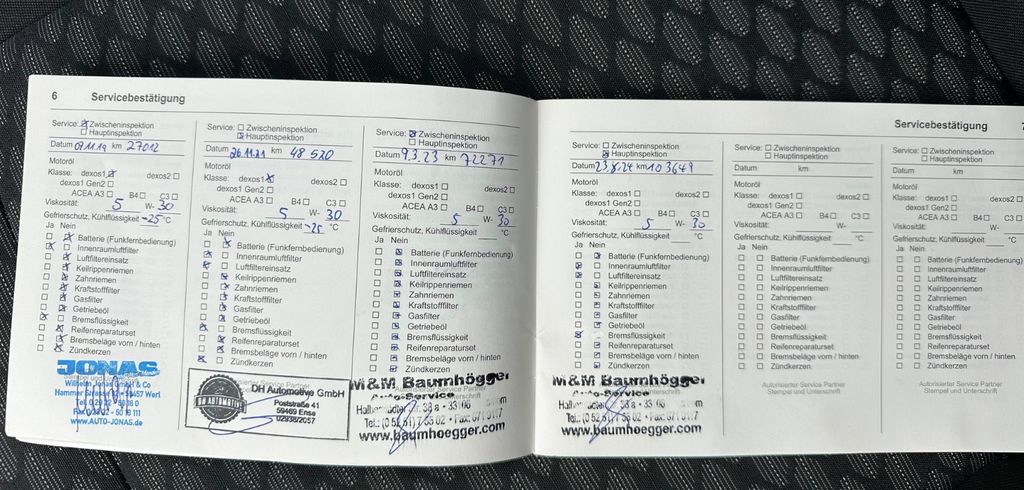 6 Servicebestätigung
Service: ☒ Zwischeninspektion
☐ Hauptinspektion
Datum 07.11.19 km 27012
Motoröl
Klasse: dexos1 ☒ dexos2 ☐
dexos1 Gen2 ☐
ACEA A3 ☐ B4 ☐ C3 ☐
Viskosität: 5 W- 30
Gefrierschutz, Kühlflüssigkeit -25 °C
Ja Nein
Batterie (Funkfernbedienung)
Innenraumluftfilter
Luftfiltereinsatz
Keilrippenriemen
Zahnriemen
Kraftstofffilter
Gasfilter
Getriebeöl
Bremsflüssigkeit
Reifenreparaturset
Bremsbeläge vorn / hinten
Zündkerzen
JONAS
Wilhelm Jonas GmbH & Co
Hammer 59457 Werl
www.AUTO-JONAS.de
Service: ☐ Zwischeninspektion
☒ Hauptinspektion
Datum 26.11.21 km 48 520
Motoröl
Klasse: dexos1 ☒ dexos2 ☐
dexos1 Gen2 ☐
ACEA A3 ☐ B4 ☐ C3 ☐
Viskosität: 5 W- 30
Gefrierschutz, Kühlflüssigkeit -25 °C
Ja Nein
Batterie (Funkfernbedienung)
Innenraumluftfilter
Luftfiltereinsatz
Keilrippenriemen
Zahnriemen
Kraftstofffilter
Gasfilter
Getriebeöl
Bremsflüssigkeit
Reifenreparaturset
Bremsbeläge vorn / hinten
Zündkerzen
DH AUTOMOTIVE
DH Automotive GmbH
Poststraße 41
59469 Ense
02938/2057
Service: ☒ Zwischeninspektion
☐ Hauptinspektion
Datum 9.3.23 km 72271
Motoröl
Klasse: dexos1 ☐ dexos2 ☐
dexos1 Gen2 ☐
ACEA A3 ☐ B4 ☐ C3 ☐
Viskosität: 5 W- 30
Gefrierschutz, Kühlflüssigkeit °C
Ja Nein
Batterie (Funkfernbedienung)
Innenraumluftfilter
Luftfiltereinsatz
Keilrippenriemen
Zahnriemen
Kraftstofffilter
Gasfilter
Getriebeöl
Bremsflüssigkeit
Reifenreparaturset
Bremsbeläge vorn / hinten
Zündkerzen
M&M Baumhögger
Auto-Service
www.baumhoegger.com
Servicebestätigung
Service: ☐ Zwischeninspektion
☒ Hauptinspektion
Datum 23.8.24 km 103649
Motoröl
Klasse: dexos1 ☐ dexos2 ☐
dexos1 Gen2 ☐
ACEA A3 ☐ B4 ☐ C3 ☐
Viskosität: 5 W- 30
Gefrierschutz, Kühlflüssigkeit °C
Ja Nein
Batterie (Funkfernbedienung)
Innenraumluftfilter
Luftfiltereinsatz
Keilrippenriemen
Zahnriemen
Kraftstofffilter
Gasfilter
Getriebeöl
Bremsflüssigkeit
Reifenreparaturset
Bremsbeläge vorn / hinten
Zündkerzen
M&M Baumhögger
Auto-Service
www.baumhoegger.com
Service: ☐ Zwischeninspektion
☐ Hauptinspektion
Datum km
Motoröl
Klasse: dexos1 ☐ dexos2 ☐
dexos1 Gen2 ☐
ACEA A3 ☐ B4 ☐ C3 ☐
Viskosität: W-
Gefrierschutz, Kühlflüssigkeit °C
Ja Nein
☐ ☐ Batterie (Funkfernbedienung)
☐ ☐ Innenraumluftfilter
☐ ☐ Luftfiltereinsatz
☐ ☐ Keilrippenriemen
☐ ☐ Zahnriemen
☐ ☐ Kraftstofffilter
☐ ☐ Gasfilter
☐ ☐ Getriebeöl
☐ ☐ Bremsflüssigkeit
☐ ☐ Reifenreparaturset
☐ ☐ Bremsbeläge vorn / hinten
☐ ☐ Zündkerzen
Autorisierter Service Partner
Stempel und Unterschrift
Service: ☐ Zwischeninspektion
☐ Hauptinspektion
Datum km
Motoröl
Klasse: dexos1 ☐ dexos2 ☐
dexos1 Gen2 ☐
ACEA A3 ☐ B4 ☐ C3 ☐
Viskosität: W-
Gefrierschutz, Kühlflüssigkeit
Ja Nein
☐ ☐ Batterie (Funkfernbedienung)
☐ ☐ Innenraumluftfilter
☐ ☐ Luftfiltereinsatz
☐ ☐ Keilrippenriemen
☐ ☐ Zahnriemen
☐ ☐ Kraftstofffilter
☐ ☐ Gasfilter
☐ ☐ Getriebeöl
☐ ☐ Bremsflüssigkeit
☐ ☐ Reifenreparaturset
☐ ☐ Bremsbeläge vorn / hinten
☐ ☐ Zündkerzen
Autorisierter Service Partner
Stempel und Unterschrift